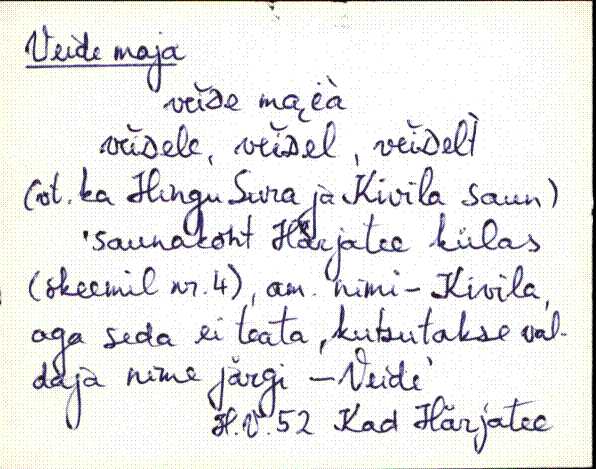 Veide maja
vĕiᴅe maᴉ̯èà
vĕiᴅele, vĕiᴅel, vĕiᴅelt̀
(vt. ka Hingu Sura ja Kivila saun)
'saunakoht Härjatee külas
(skeemil nr. 4), am. nimi – Kivila,
aga seda ei teata, kutsutakse val-
daja nime järgi – Veide'
H.V. 52 Kad Härjatee